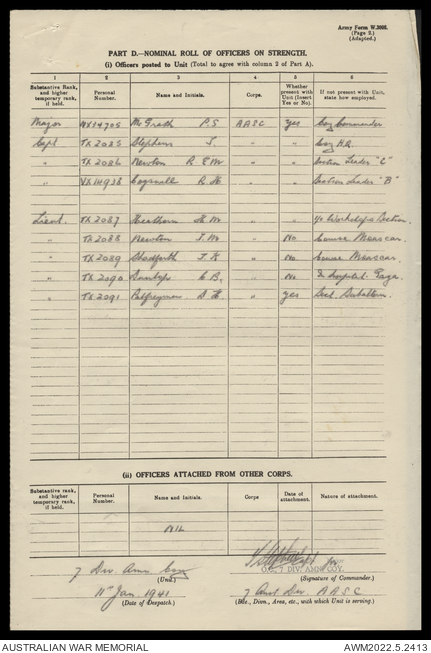 Army Form W.3008.
(Page 2.)
(Adapted.)
PART D.—NOMINAL ROLL OF OFFICERS ON STRENGTH.
(i) Officers posted to Unit (Total to agree with column 2 of Part A).
1 2 3 4 5 6
Substantive Rank, and higher temporary rank, if held. Personal Number. Name and Initials. Corps. Whether present with Unit (Insert Yes or No). If not present with Unit, state how employed.
Major NX14705 McGrath P.S AASC yes Coy Commander
Capt TX2085 Stephens J. " Coy H.Q.
" TX2086 Newton R E M " Section Leader "C"
" VX14938 Cogswell R. H. " Section Leader "B"
Lieut. TX2087 H M " Workshops Section.
" TX2088 Newton J. M " No Course Moascar.
" TX2089 J. K " No Course Moascar.
" TX2090 C B. " No In hospital Gaza.
" TX2091 Palfreyman D L. " yes Sect. Subaltern.
(ii) OFFICERS ATTACHED FROM OTHER CORPS.
Substantive rank, and higher temporary rank, if held. Personal Number. Name and Initials. Corps Date of attachment. Nature of attachment.
NIL
7 Div. Amn Coy
(Unit.)
O.C. 7 DIV. AMN. COY.
(Signature of Commander.)
11th Jan 1941
(Date of Despatch.)
7 Aust Div. AASC
(Bde., Divn., Area, etc., with which Unit is serving.)
AUSTRALIAN WAR MEMORIAL
AWM2022.5.2413